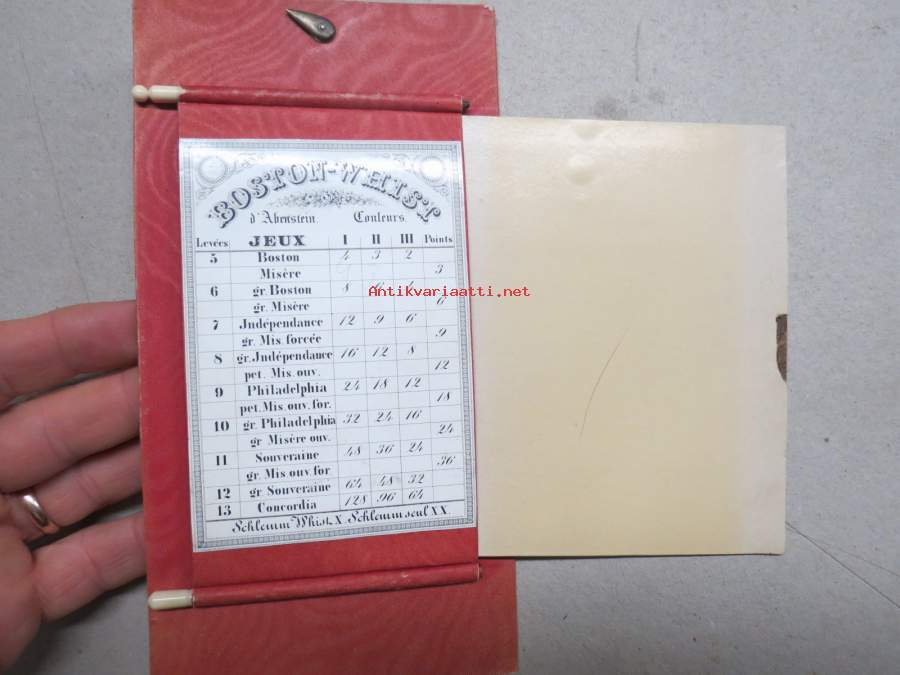 BOSTON-WHIST
d'Abenstein. Couleurs.
Levées JEUX I II III Points
5 Boston 4 3 2
Misère 3
6 gr. Boston 8 6 4
Antikvariaatti.net
gr. Misère 6
7 Jndépendance 12 9 6
gr. Mis. forcée 9
8 gr. Jndépendance 16 12 8
pet. Mis. ouv. 12
9 Philadelphia 24 18 12
pet. Mis. ouv. for. 18
10 gr. Philadelphia 32 24 16
gr Misère ouv. 24
11 Souveraine 48 36 24
gr. Mis. ouv. for 36
12 gr. Souveraine 64 48 32
13 Concordia 128 96 64
Schlemm Whist. X. Schlemm seul XX.